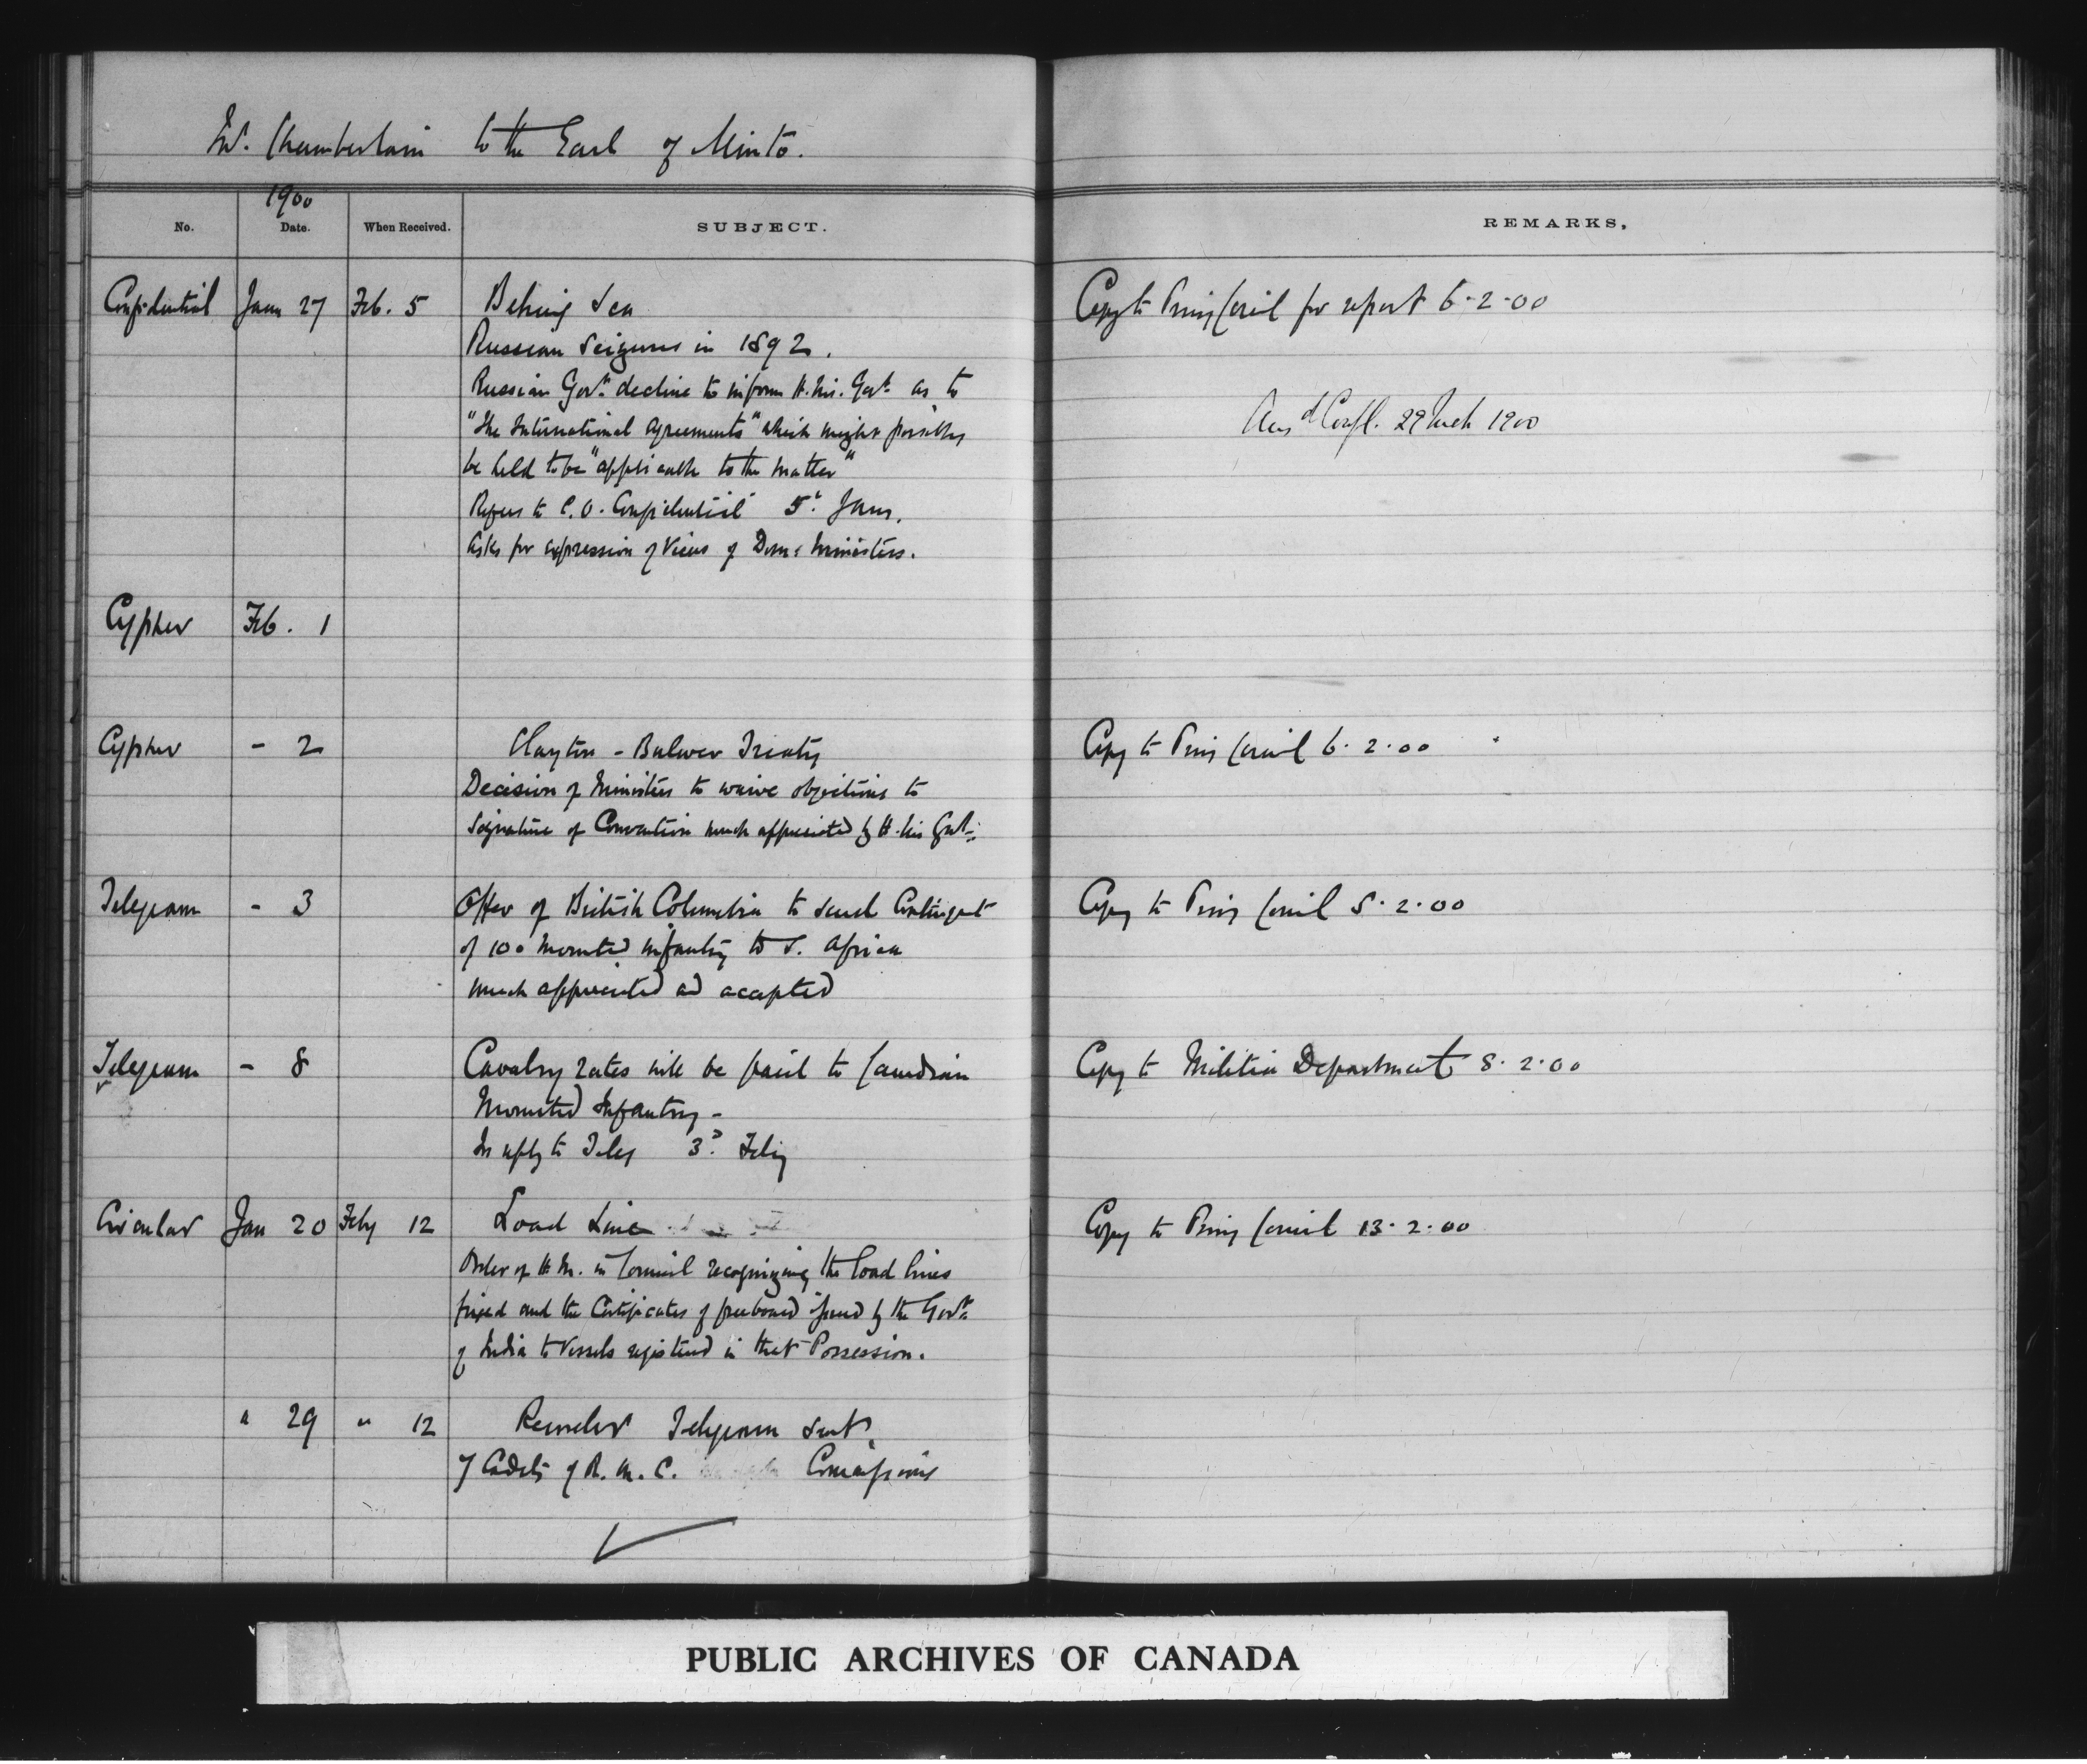 Mr. Chamberlain to the Earl of Minto.
1900
No. Date. When Received. SUBJECT. REMARKS.
Confidential Jany 27 Feb. 5 Behring Sea Copy to Privy Council for report 6-2-00
Russian Seizures in 1892.
Russian Govt. decline to inform H. M's. Govt. as to
"the International Agreements" which might possibly Ansd Confl. 29 Mch 1900
be held to be "applicable to the matter"
Refers to C.O. Confidential 5th Jany.
Asks for expression of views of Dom: Ministers.
Cypher Feb. 1
Cypher - 2 Clayton - Bulwer Treaty Copy to Privy Council 6.2.00
Decision of Ministers to waive objections to
Signature of Convention much appreciated by H. Ms Govt.
Telegram - 3 Offer of British Columbia to send Contingent Copy to Privy Council 5.2.00
of 100 mounted infantry to S. Africa
much appreciated and accepted
Telegram - 8 Cavalry rates will be paid to Canadian Copy to Militia Department 8.2.00
Mounted Infantry -
In reply to Teleg 3d Feby
Circular Jan 20 Feby 12 Load Line Copy to Privy Council 13.2.00
Order of H.M. in Council recognizing the load lines
fixed and the Certificates of freeboard issued by the Govt.
of India to Vessels registered in that Possession.
" 29 " 12 Telegram sent.
of Cadets of R.M.C. Commissions
PUBLIC ARCHIVES OF CANADA